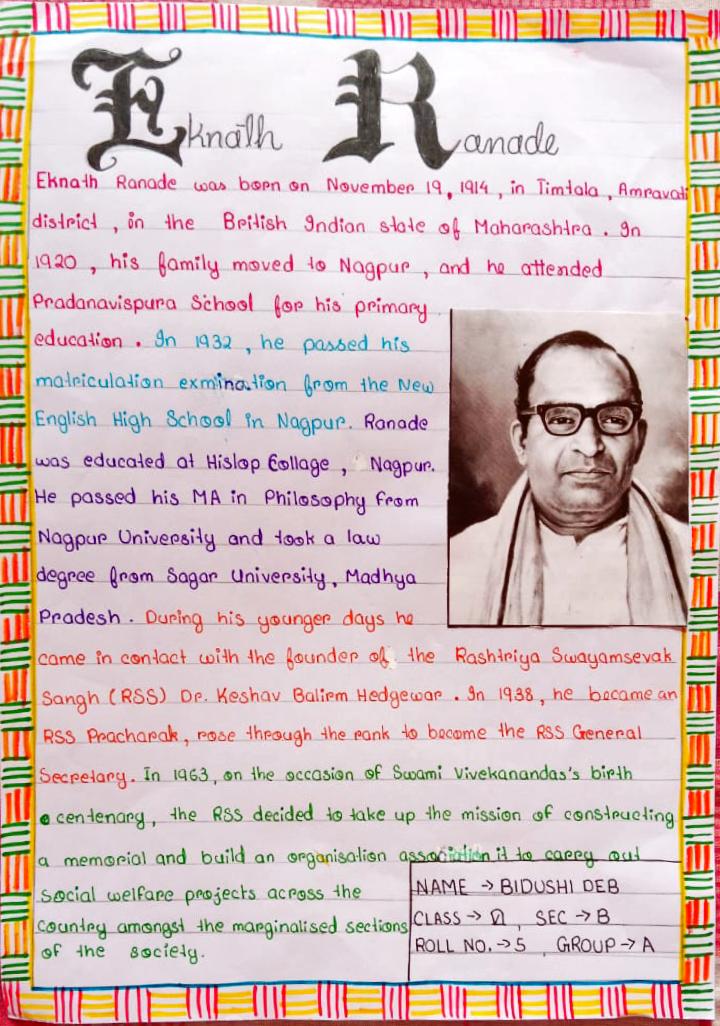 Eknath Ranade
Eknath Ranade was born on November 19, 1914, in Timtala, Amravati
district, in the British Indian state of Maharashtra. In
1920, his family moved to Nagpur, and he attended
Pradanavispura School for his primary
education. In 1932, he passed his
matriculation exmination from the New
English High School in Nagpur. Ranade
was educated at Hislop Collage, Nagpur.
He passed his MA in Philosophy from
Nagpur University and took a law
degree from Sagar University, Madhya
Pradesh. During his younger days he
came in contact with the founder of the Rashtriya Swayamsevak
Sangh (RSS) Dr. Keshav Balirm Hedgewar. In 1938, he became an
RSS Pracharak, rose through the rank to become the RSS General
Secretary. In 1963, on the occasion of Swami Vivekanandas's birth
centenary, the RSS decided to take up the mission of constructing
a memorial and build an organisation association it to carry out
social welfare projects across the
country amongst the marginalised sections
of the society.
NAME → BIDUSHI DEB
CLASS → VI, SEC → B
ROLL NO. → 5, GROUP → A